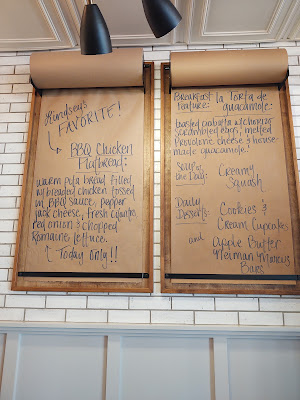 Lindsey's
FAVORITE!
BBQ Chicken
Flatbread:
warm pita bread filled
w/ breaded chicken tossed
in BBQ sauce, pepper
jack cheese, fresh cilantro,
red onion & chopped
Romaine lettuce.
Today Only!!
Breakfast la Torta de
Feature: guacamole:
toasted ciabatta w/ chorizo,
scrambled eggs, melted
Provolone cheese & house
made guacamole!
Soup of Creamy
the Day: Squash
Daily Cookies &
Desserts: Cream Cupcakes
and Apple Butter
Neiman Marcus
Bars